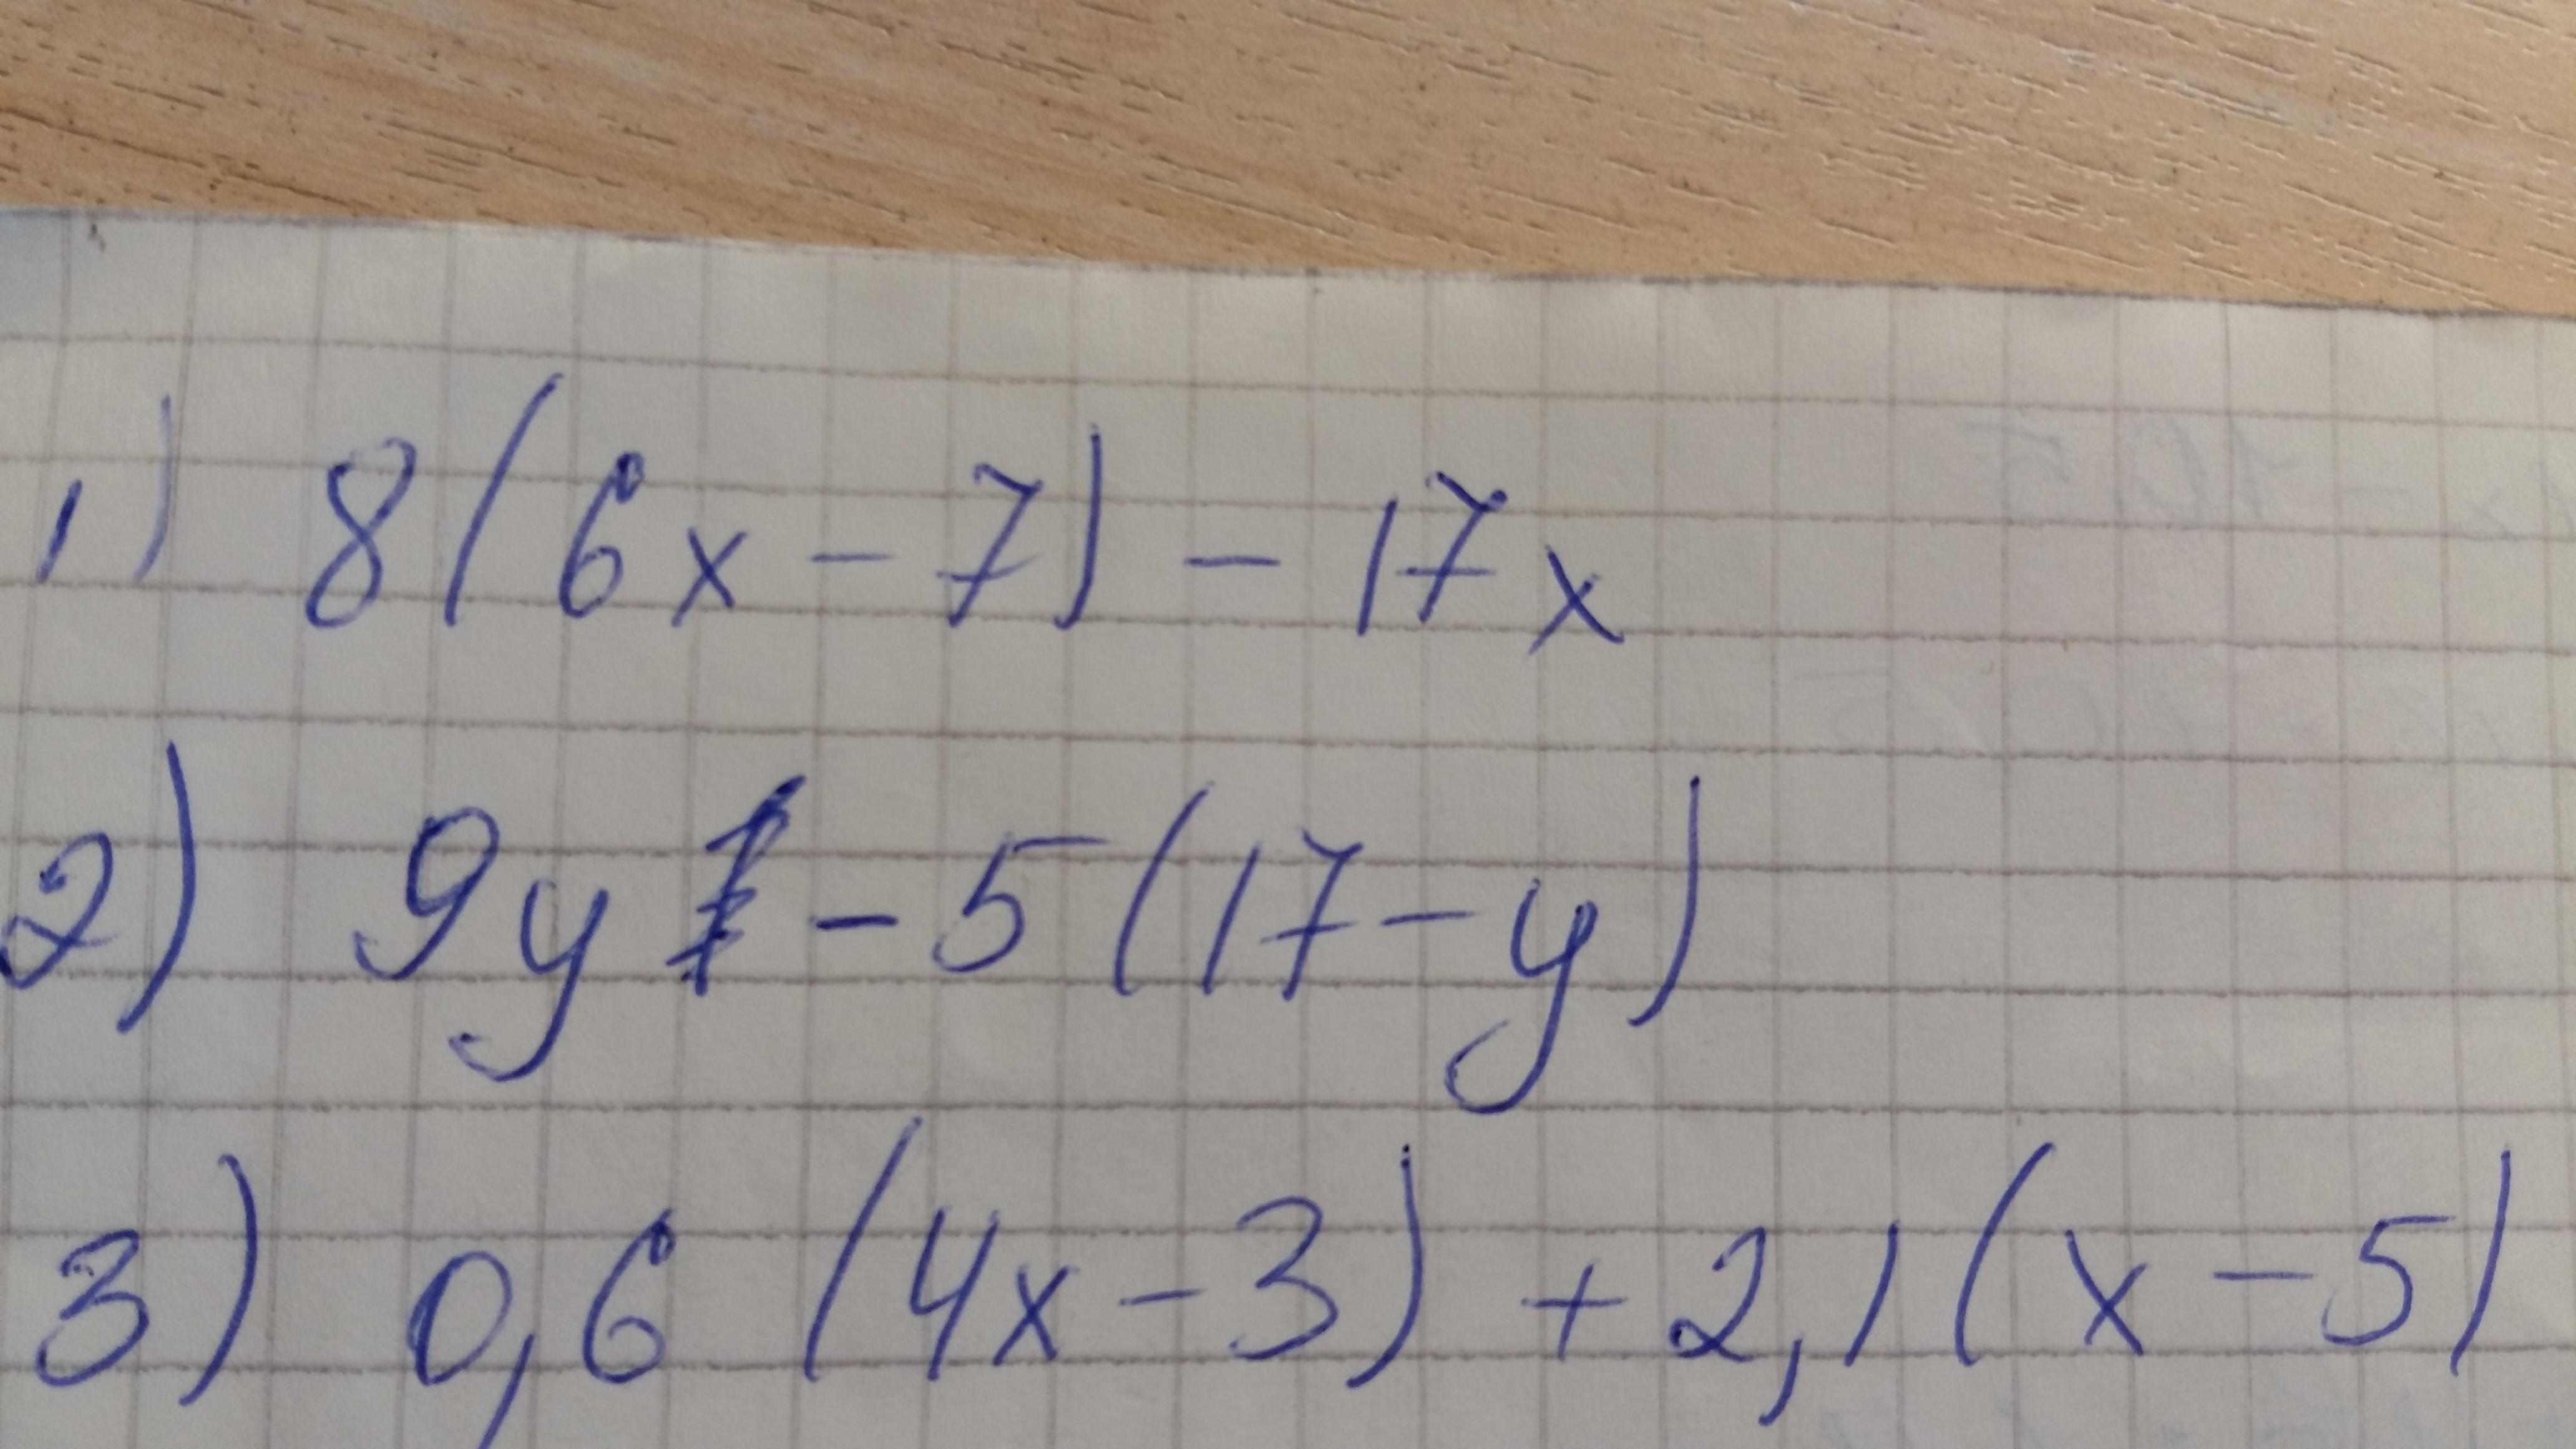 1) 8(6x - 7) - 17x
2) 9y - 5(17 - y)
3) 0,6 (4x - 3) + 2,1(x - 5)